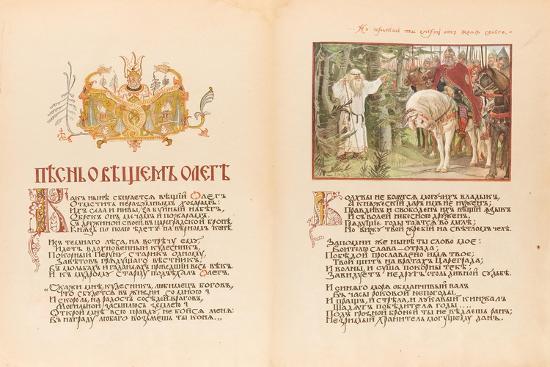 ПѢСНЬ О ВѢЩЕМЪ ОЛЕГѢ
Какъ нынѣ сбирается вѣщій Олегъ
Отмстить неразумнымъ хозарамъ:
Ихъ села и нивы за буйный набѣгъ
Обрекъ онъ мечамъ и пожарамъ.
Съ дружиной своей, въ цареградской бронѣ,
Князь по полю ѣдетъ на вѣрномъ конѣ.
Изъ темнаго лѣса, на встрѣчу ему,
Идетъ вдохновенный кудесникъ,
Покорный Перуну старикъ одному,
Завѣтовъ грядущаго вѣстникъ,
Въ мольбахъ и гаданьяхъ проведшій весь вѣкъ.
И къ мудрому старцу подъѣхалъ Олегъ.
„Скажи мнѣ, кудесникъ, любимецъ боговъ,
Что сбудется въ жизни со мною?
И скоро ль, на радость сосѣдей-враговъ,
Могильной засыплюсь землею?
Открой мнѣ всю правду, не бойся меня:
Въ награду любаго возьмешь ты коня...“
Но примешь ты смерть отъ коня своего.
Волхвы не боятся могучихъ владыкъ,
А княжескій даръ имъ не нуженъ;
Правдивъ и свободенъ ихъ вѣщій языкъ
И съ волей небесною друженъ.
Грядущіе годы таятся во мглѣ;
Но вижу твой жребій на свѣтломъ челѣ.
Запомни же нынѣ ты слово мое:
Воителю слава — отрада;
Побѣдой прославлено имя твое;
Твой щитъ на вратахъ Цареграда;
И волны и суша покорны тебѣ;
Завидуетъ недругъ столь дивной судьбѣ.
И синяго моря обманчивый валъ
Въ часы роковой непогоды,
И пращъ, и стрѣла, и лукавый кинжалъ
Щадятъ побѣдителя годы...
Подъ грозной броней ты не вѣдаешь ранъ;
Незримый хранитель могущему данъ.